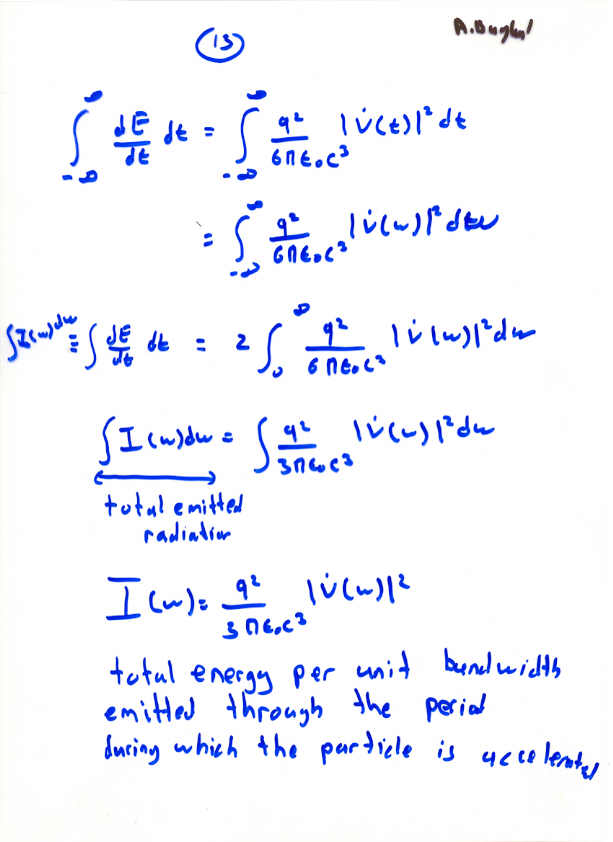 (13)
∫_{-∞}^{∞} dE/dt dt = ∫_{-∞}^{∞} q²/6πε₀c³ |v̇(t)|² dt
= ∫_{-∞}^{∞} q²/6πε₀c³ |v̇(ω)|² dω
∫I(ω)dω ≡ ∫ dE/dt dt = 2 ∫_0^{∞} q²/6πε₀c³ |v̇(ω)|² dω
∫I(ω)dω = ∫ q²/3πε₀c³ |v̇(ω)|² dω
total emitted
radiation
I(ω) = q²/3πε₀c³ |v̇(ω)|²
total energy per unit bandwidth
emitted through the period
during which the particle is accelerated